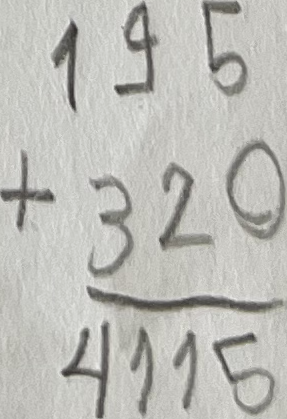 195
+ 320
4115